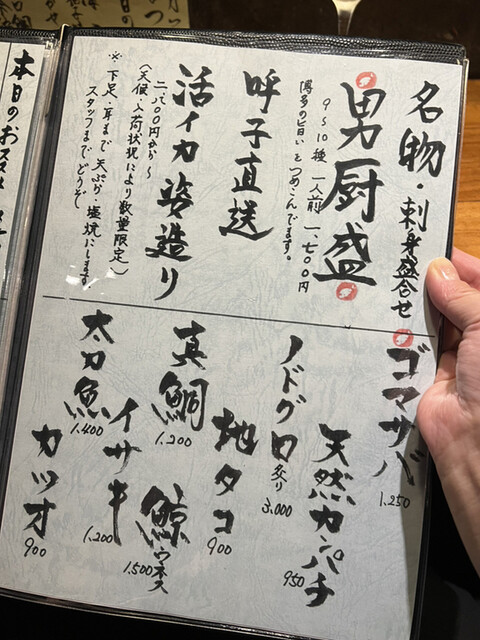 名物・刺身盛合せ
男厨盛
9~10種 一人前 一、七〇〇円
博多の旨いをつめこんでます。
呼子直送
活イカ姿造り
二、八〇〇円から~
(天候・入荷状況により数量限定)
※下足・耳まで 天ぷら・塩焼にします
スタッフまでどうぞ
ゴマサバ
1.250
天然カンパチ
950
ノドグロ炙り
3.000
地タコ
900
真鯛
1.200
鯨ウネス
1.500
太刀魚
1.400
イサキ
1.200
カツオ
900
本日のおススメ